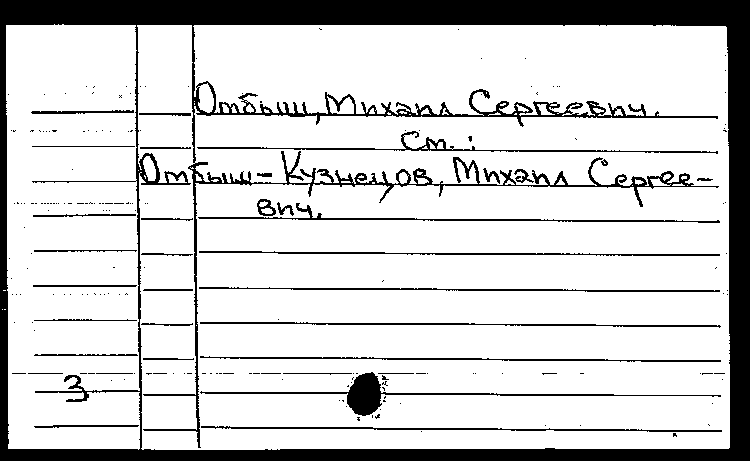 Отбыш, Михаил Сергеевич.
См. :
Отбыш-Кузнецов, Михаил Сергее-
вич.
3